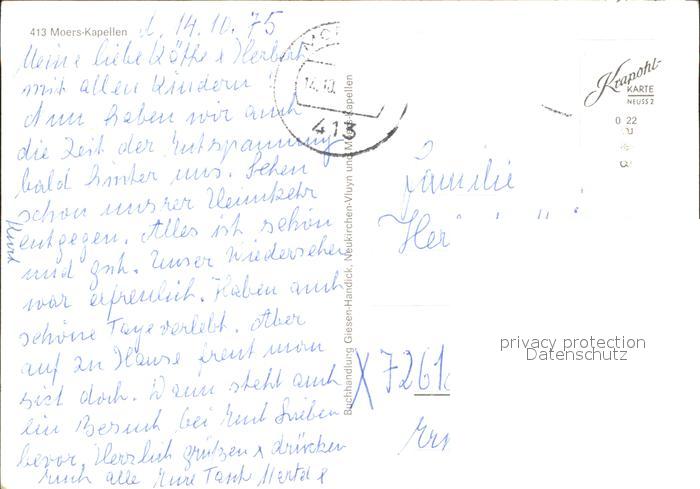 413 Moers-Kapellen
d. 14.10.75
Meine liebe Käthe & Herbert
mit allen Kindern
Nun haben wir auch
die Zeit der Entspannung
bald hinter uns. Sehen
schon unsrer Heimkehr
entgegen. Alles ist schön
und gut. Unser Wiedersehen
war erfreulich. Haben auch
schöne Tage verlebt. Aber
auf zu Hause freut man
sich doch. Dann steht auch
ein Besuch bei Euch Lieben
bevor. Herzlich grüßen & drücken
Euch alle Eure Tante Herta &
Kurt
Buchhandlung Giesen-Handick, Neukirchen-Vluyn und Moers-Kapellen
14.10.
413
Krapohl-
KARTE
NEUSS 2
0 22
Familie
Her
X 7261
privacy protection
Datenschutz